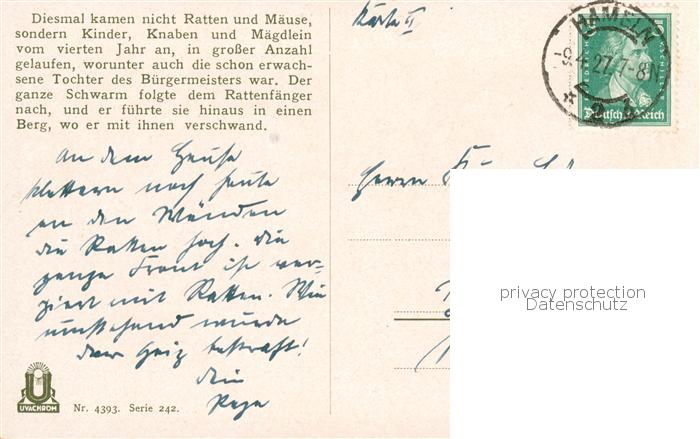 Diesmal kamen nicht Ratten und Mäuse,
sondern Kinder, Knaben und Mägdlein
vom vierten Jahr an, in großer Anzahl
gelaufen, worunter auch die schon erwach-
sene Tochter des Bürgermeisters war. Der
ganze Schwarm folgte dem Rattenfänger
nach, und er führte sie hinaus in einen
Berg, wo er mit ihnen verschwand.
An dem Hause
klettern noch heute
an den Wänden
die Ratten hoch. Die
ganze Front ist ver-
ziert mit Ratten. Wie
umstehend wurde
der Geiz bestraft!
Dein
UVACHROM
Nr. 4393. Serie 242.
Karte II
HAMELN
-9.4.27.7-8N
Deutsches Reich
Herrn
privacy protection
Datenschutz